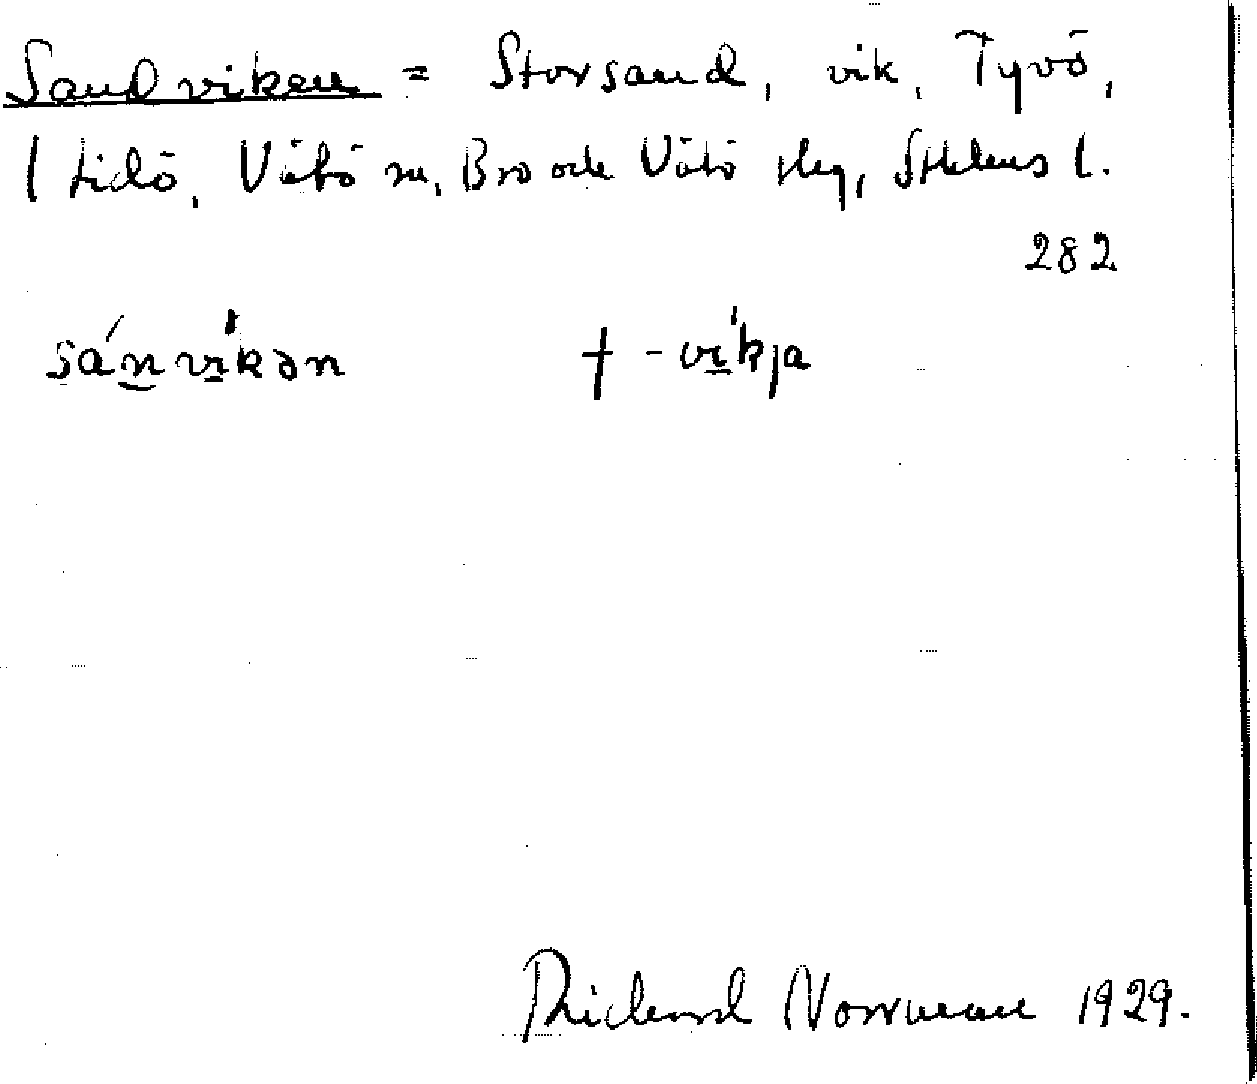 Sandviken = Storsand, vik, Tyvö,
Lidö, Vätö sn, Bro och Vätö slg, Sthlms l.
282
sánvíkən † -víkja
Rickard Norrman 1929.